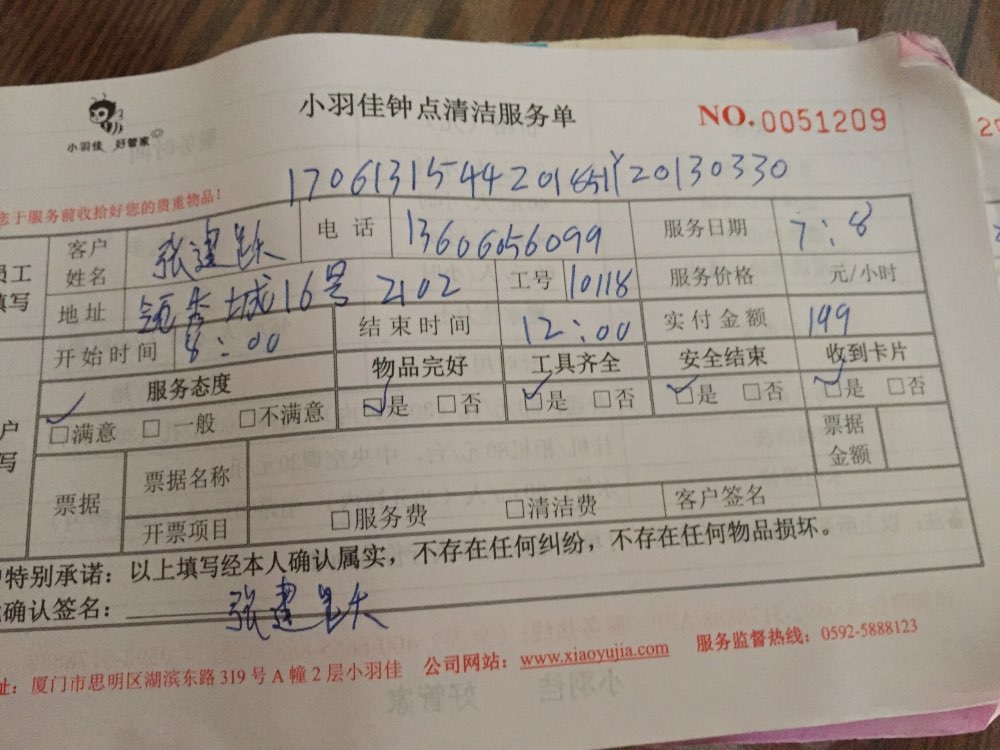 小羽佳 好管家
小羽佳钟点清洁服务单
NO.0051209
17061315442018511Y20130330
您于服务前收拾好您的贵重物品!
员工
填写
客户
姓名
张建跃
电 话
13606056099
服务日期
7:8
地 址
领秀城16号 2102
工号
10118
服务价格
元/小时
开始时间
8:00
结束时间
12:00
实付金额
199
服务态度
物品完好
工具齐全
安全结束
收到卡片
☑满意 □一般 □不满意
☑是 □否
☑是 □否
☑是 □否
☑是 □否
户
写
票据
票据名称
票据
金额
开票项目
□服务费 □清洁费
客户签名
户特别承诺:以上填写经本人确认属实,不存在任何纠纷,不存在任何物品损坏。
确认签名:张建跃
址:厦门市思明区湖滨东路 319 号 A 幢 2 层小羽佳 公司网站:www.xiaoyujia.com 服务监督热线:0592-5888123